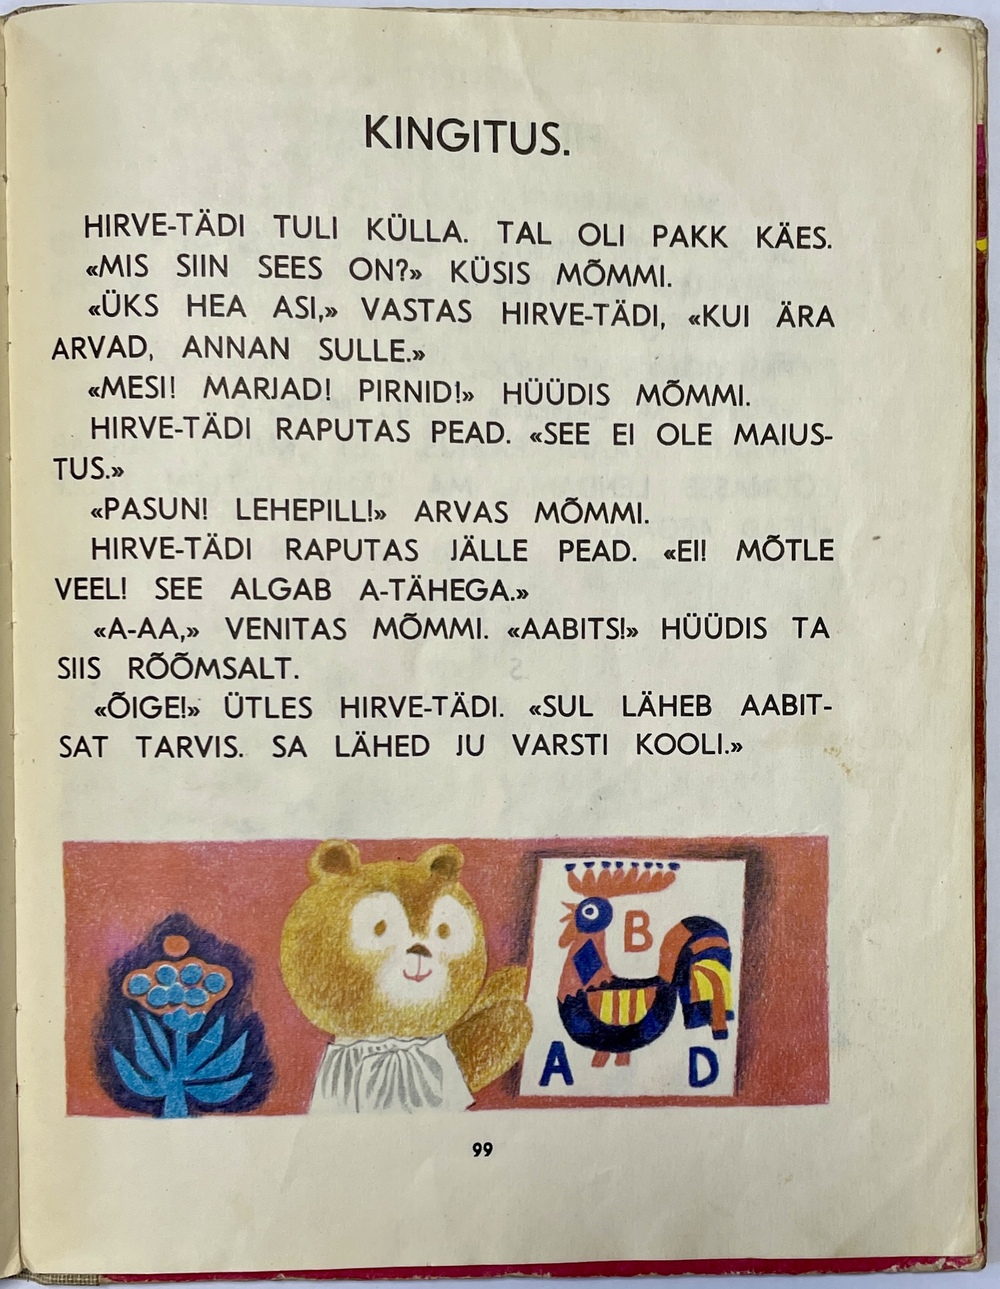 KINGITUS.
HIRVE-TÄDI TULI KÜLLA. TAL OLI PAKK KÄES.
«MIS SIIN SEES ON?» KÜSIS MÕMMI.
«ÜKS HEA ASI,» VASTAS HIRVE-TÄDI, «KUI ÄRA
ARVAD, ANNAN SULLE.»
«MESI! MARJAD! PIRNID!» HÜÜDIS MÕMMI.
HIRVE-TÄDI RAPUTAS PEAD. «SEE EI OLE MAIUS-
TUS.»
«PASUN! LEHEPILL!» ARVAS MÕMMI.
HIRVE-TÄDI RAPUTAS JÄLLE PEAD. «EI! MÕTLE
VEEL! SEE ALGAB A-TÄHEGA.»
«A-AA,» VENITAS MÕMMI. «AABITS!» HÜÜDIS TA
SIIS RÕÕMSALT.
«ÕIGE!» ÜTLES HIRVE-TÄDI. «SUL LÄHEB AABIT-
SAT TARVIS. SA LÄHED JU VARSTI KOOLI.»
B
A D
99